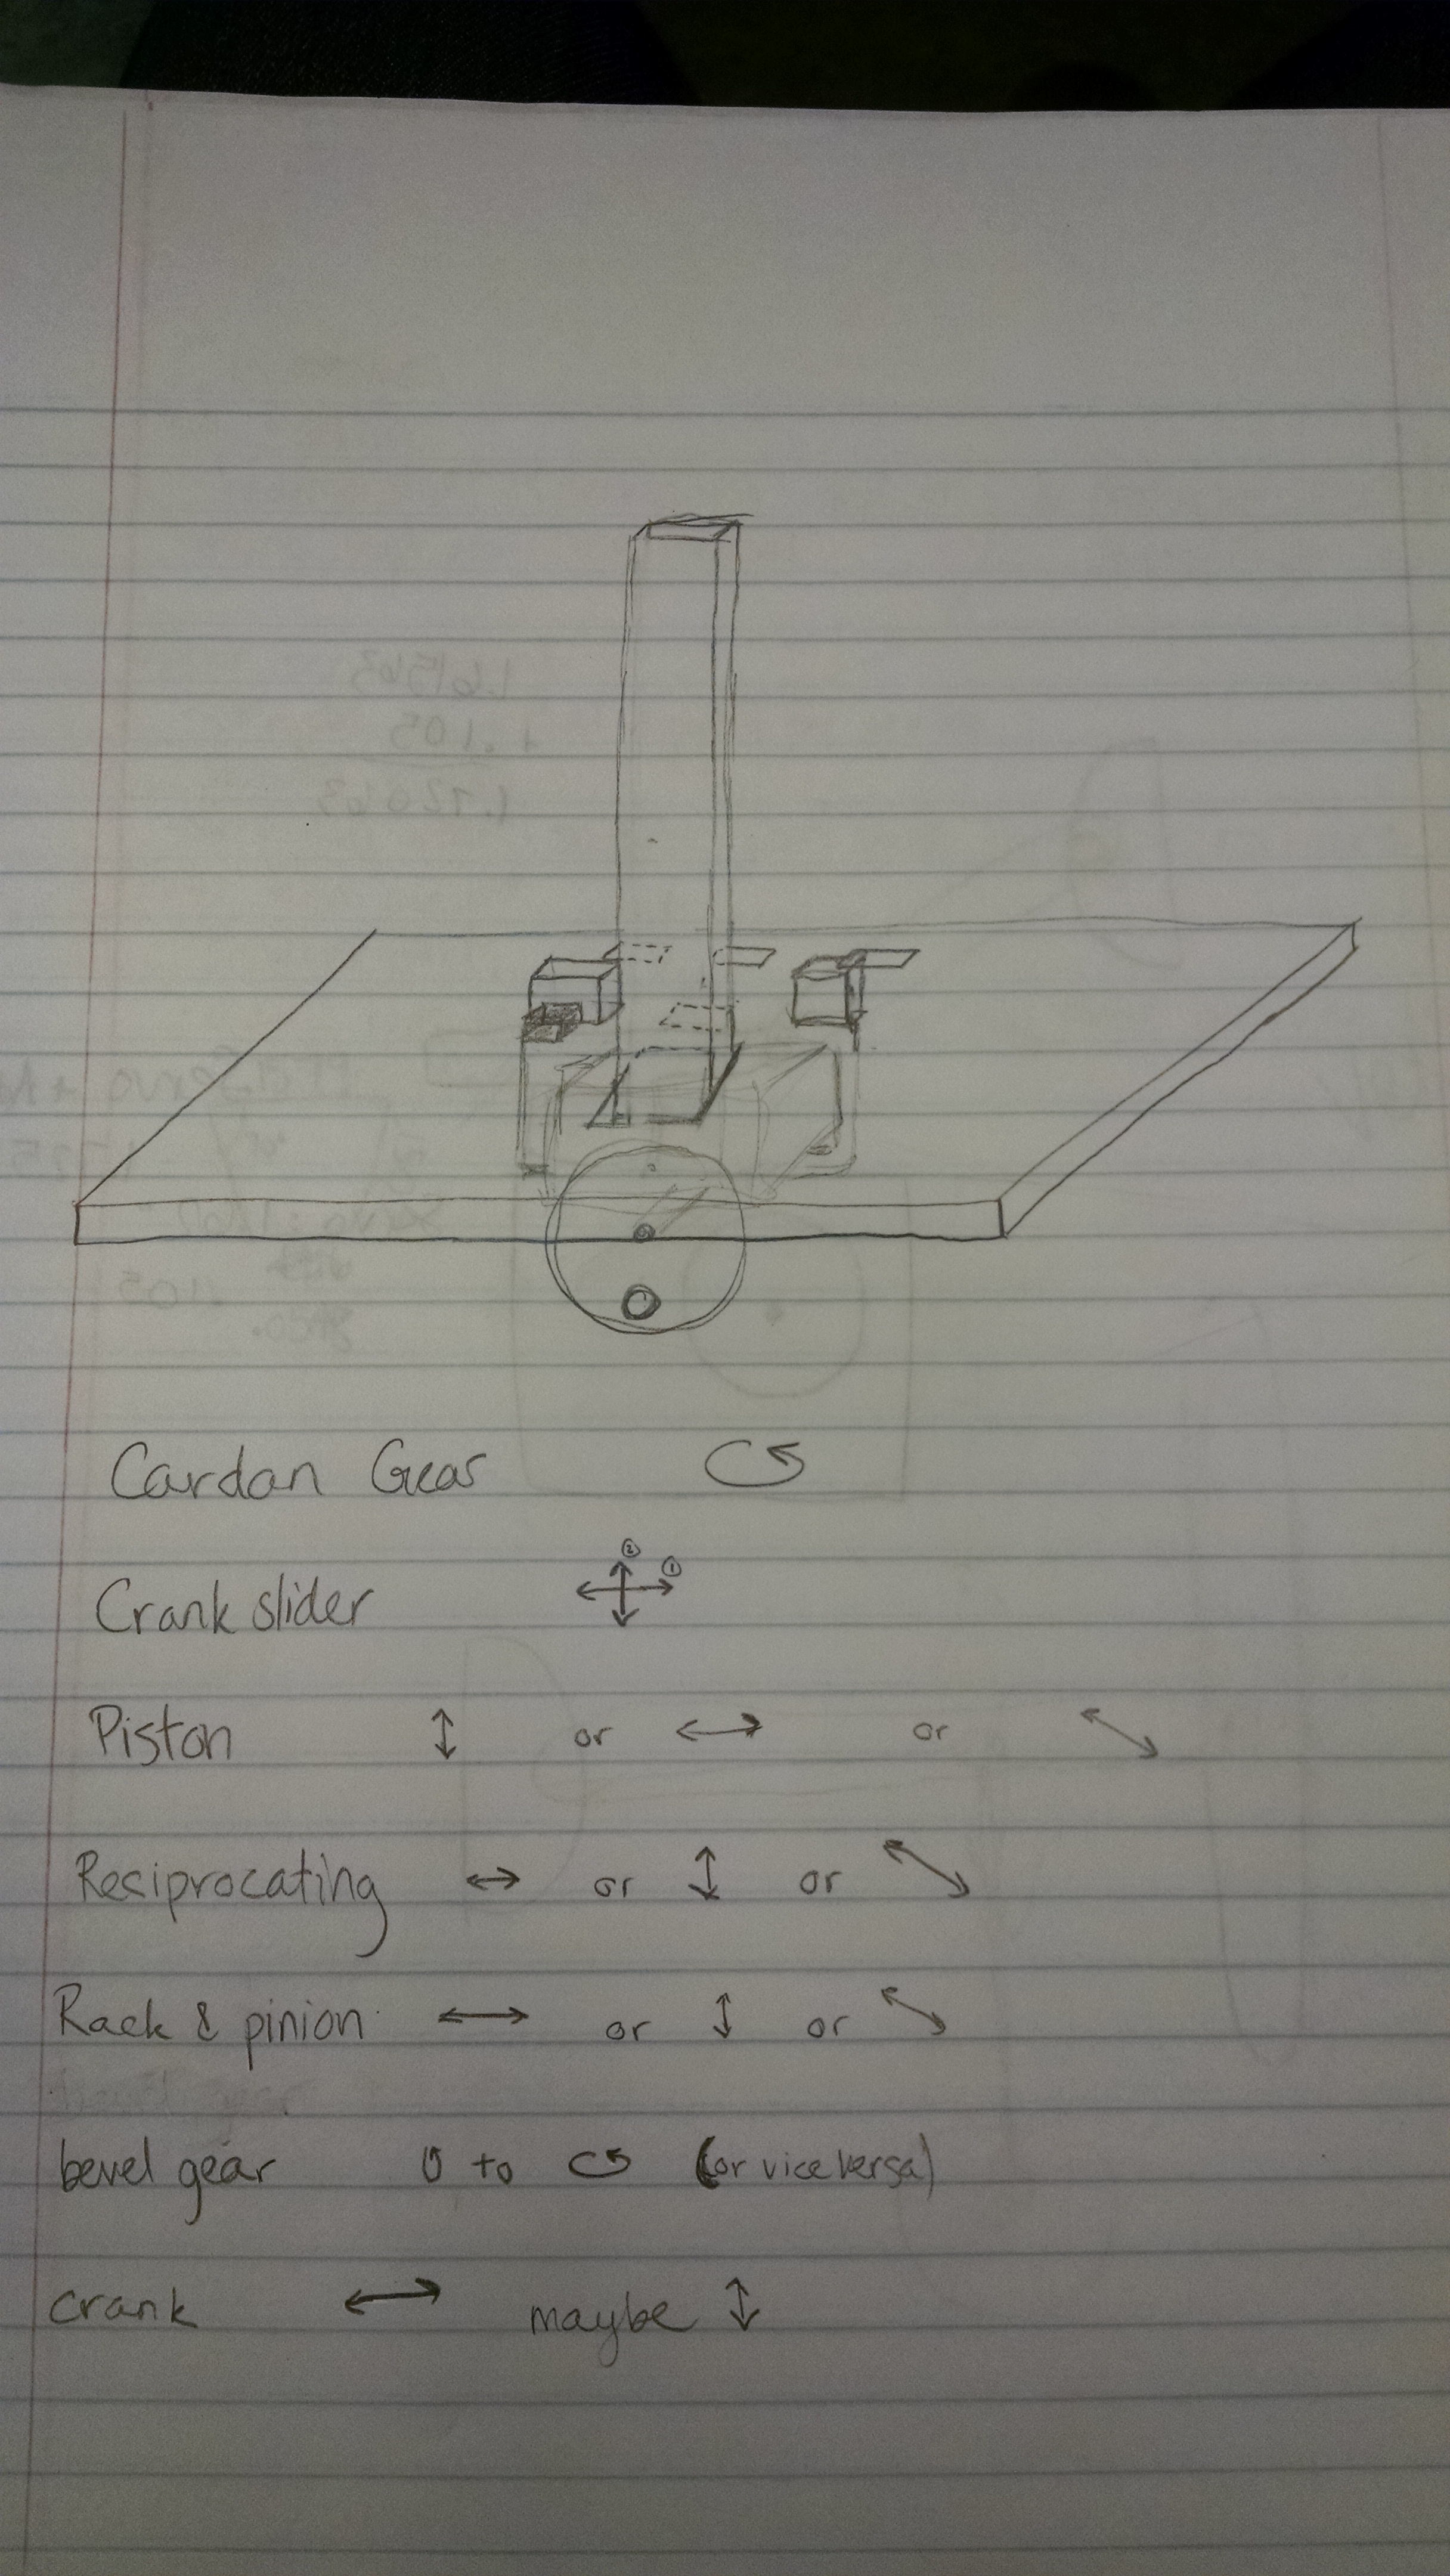 Cardan Gear
② ①
Crank slider
Piston ↕ or ↔ or ⤡
Reciprocating ↔ or ↕ or ⤡
Rack & pinion ↔ or ↕ or ⤡
bevel gear ↺ to ↺ (or vice versa)
crank ↔ maybe ↕